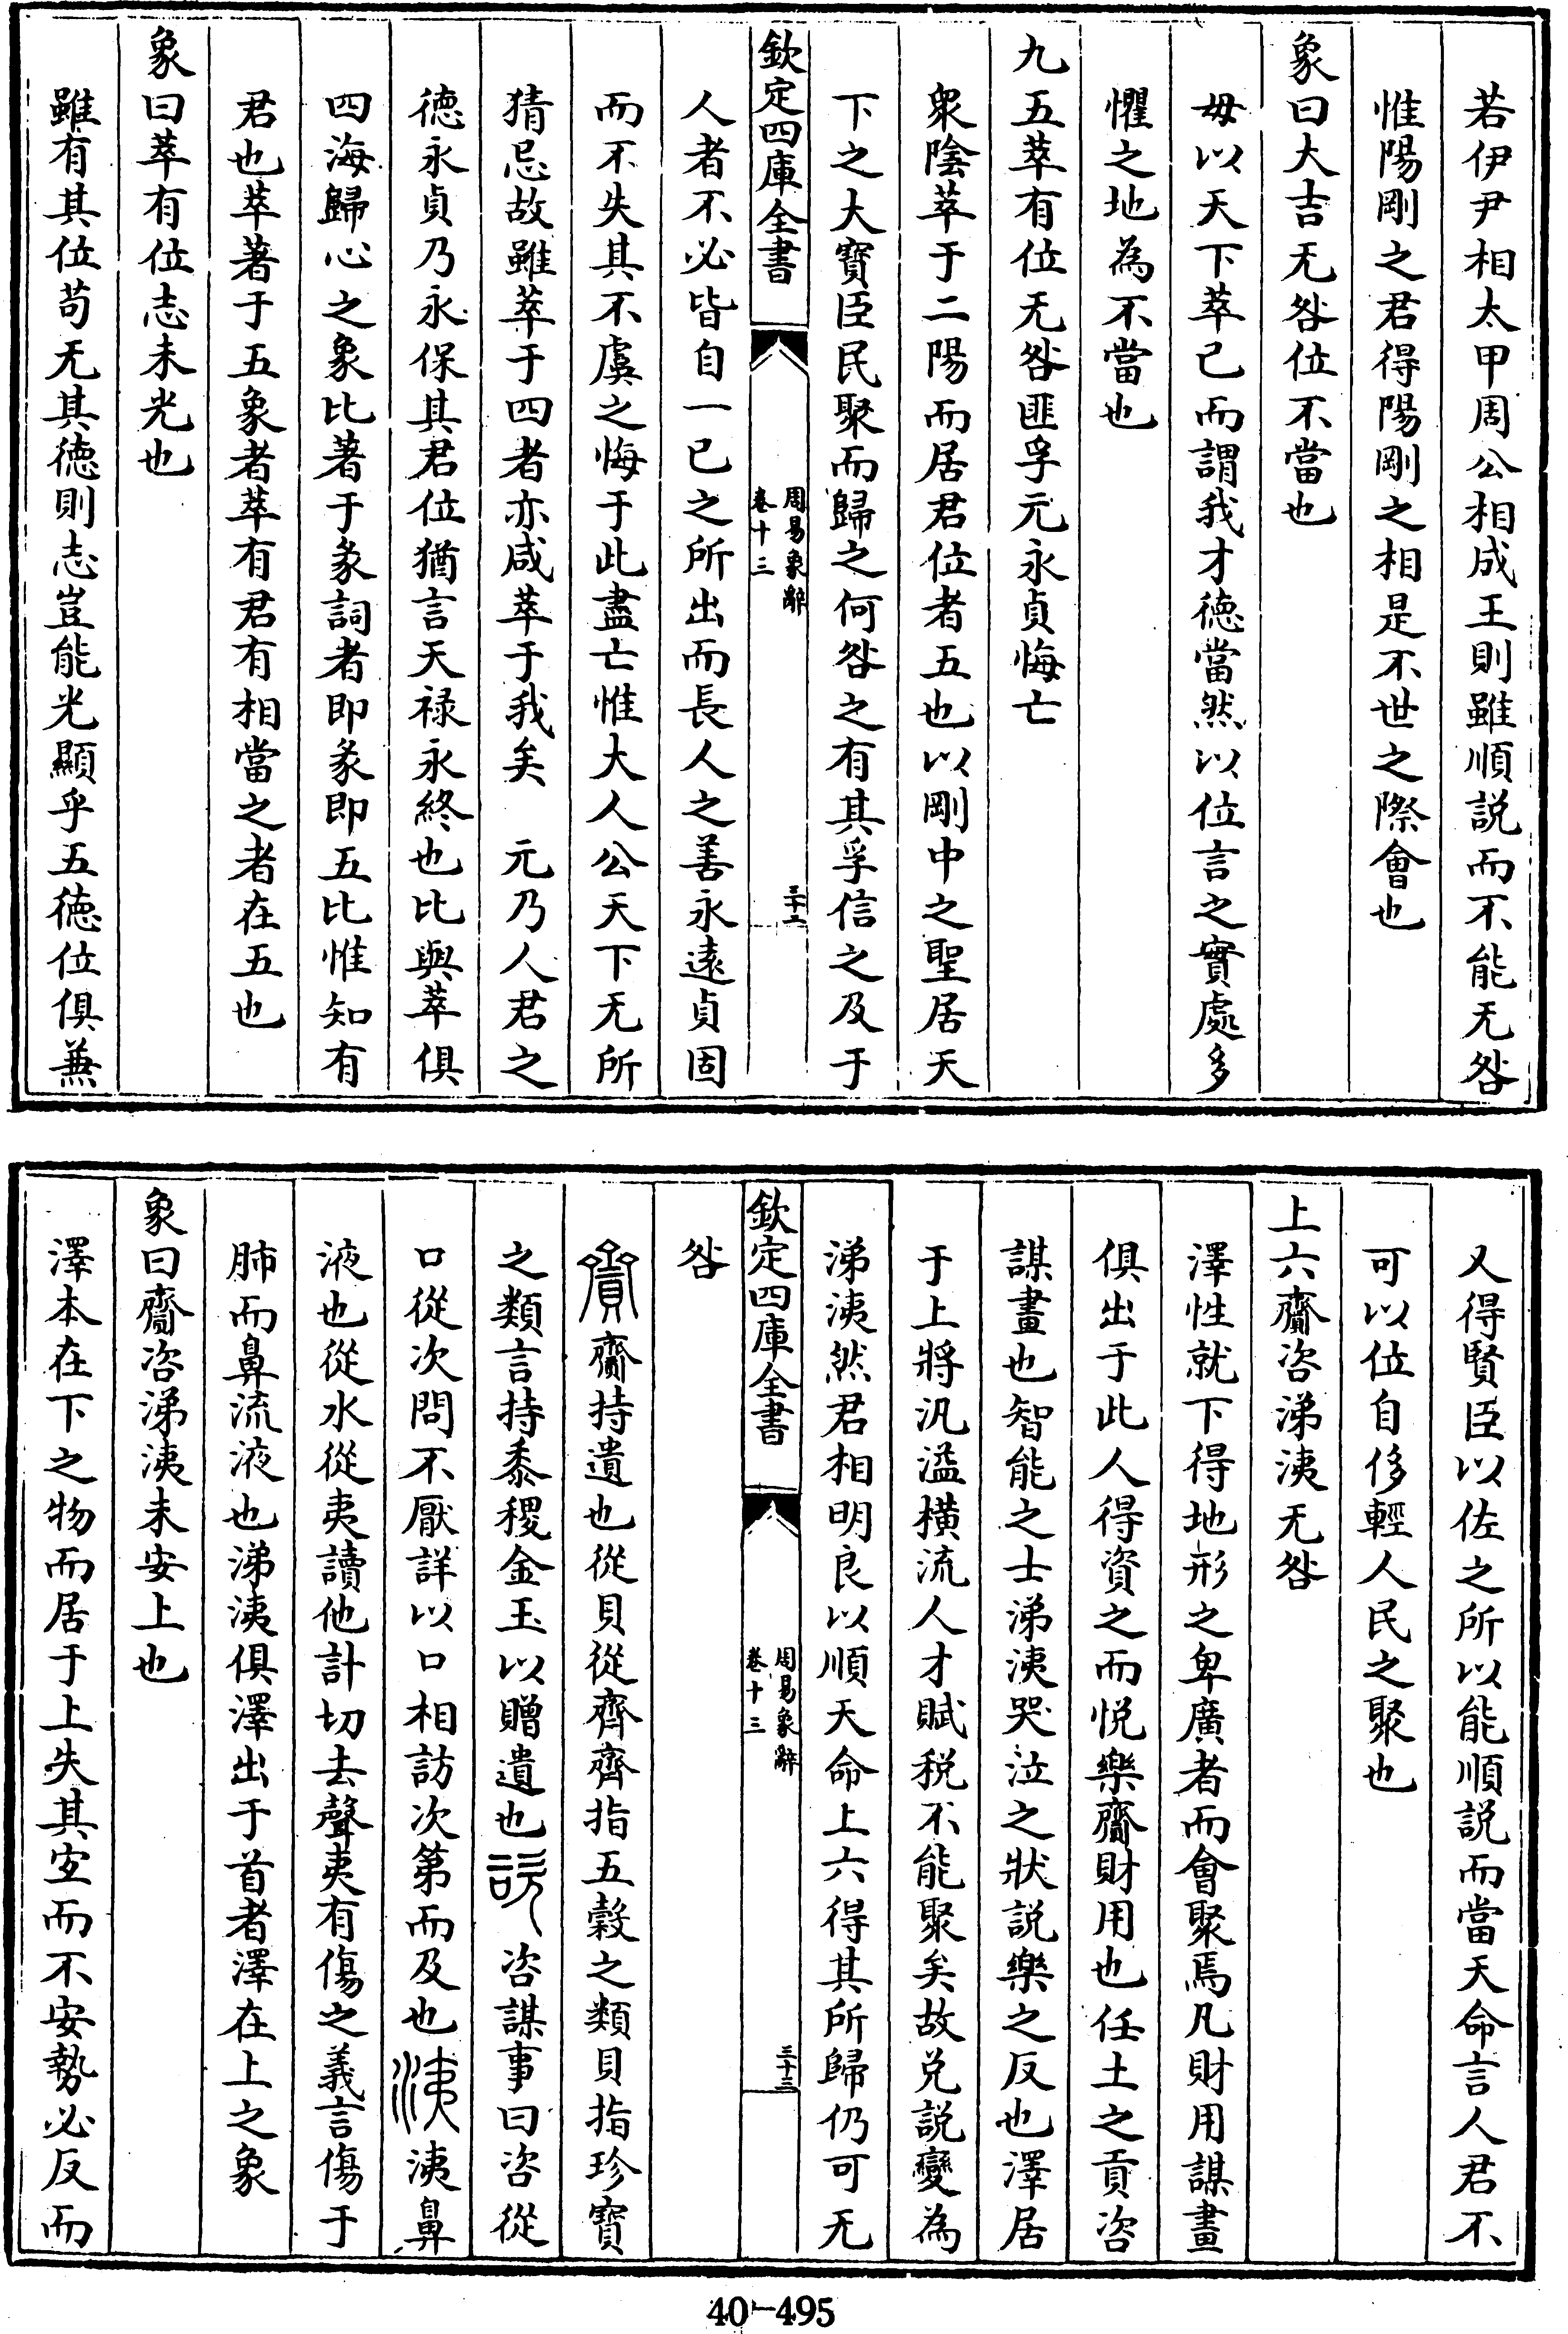 若伊尹相太甲周公相成王則雖順説而不能无咎
惟陽剛之君得陽剛之相是不世之際會也
象曰大吉无咎位不當也
毋以天下萃已而謂我才德當然以位言之實處多
懼之地為不當也
九五萃有位无咎匪孚元永貞悔亡
衆陰萃于二陽而居君位者五也以剛中之聖居天
下之大寶臣民聚而歸之何咎之有其孚信之及于
欽定四庫全書
周易象辭
卷十三
三十二
人者不必皆自一已之所出而長人之善永遠貞固
而不失其不虞之悔于此盡亡惟大人公天下无所
猜忌故雖萃于四者亦咸萃于我矣 元乃人君之
德永貞乃永保其君位猶言天禄永終也比與萃俱
四海歸心之象比著于彖詞者即彖即五比惟知有
君也萃著于五象者萃有君有相當之者在五也
象曰萃有位志未光也
雖有其位苟无其德則志豈能光顯乎五德位俱兼
又得賢臣以佐之所以能順説而當天命言人君不
可以位自侈輕人民之聚也
上六齎咨涕洟无咎
澤性就下得地形之卑廣者而會聚焉凡財用謀畫
俱出于此人得資之而悦樂齎財用也任土之貢咨
謀畫也智能之士涕洟哭泣之狀説樂之反也澤居
于上將汎溢横流人才賦税不能聚矣故兑説變為
涕洟然君相明良以順天命上六得其所歸仍可无
欽定四庫全書
周易象辭
卷十三
三十三
咎
齎齎持遺也從貝從齊齊指五穀之類貝指珍寶
之類言持黍稷金玉以贈遺也咨咨謀事曰咨從
口從次問不厭詳以口相訪次第而及也洟洟鼻
液也從水從夷讀他計切去聲夷有傷之義言傷于
肺而鼻流液也涕洟俱澤出于首者澤在上之象
象曰齎咨涕洟未安上也
澤本在下之物而居于上失其宜而不安勢必反而
40-495